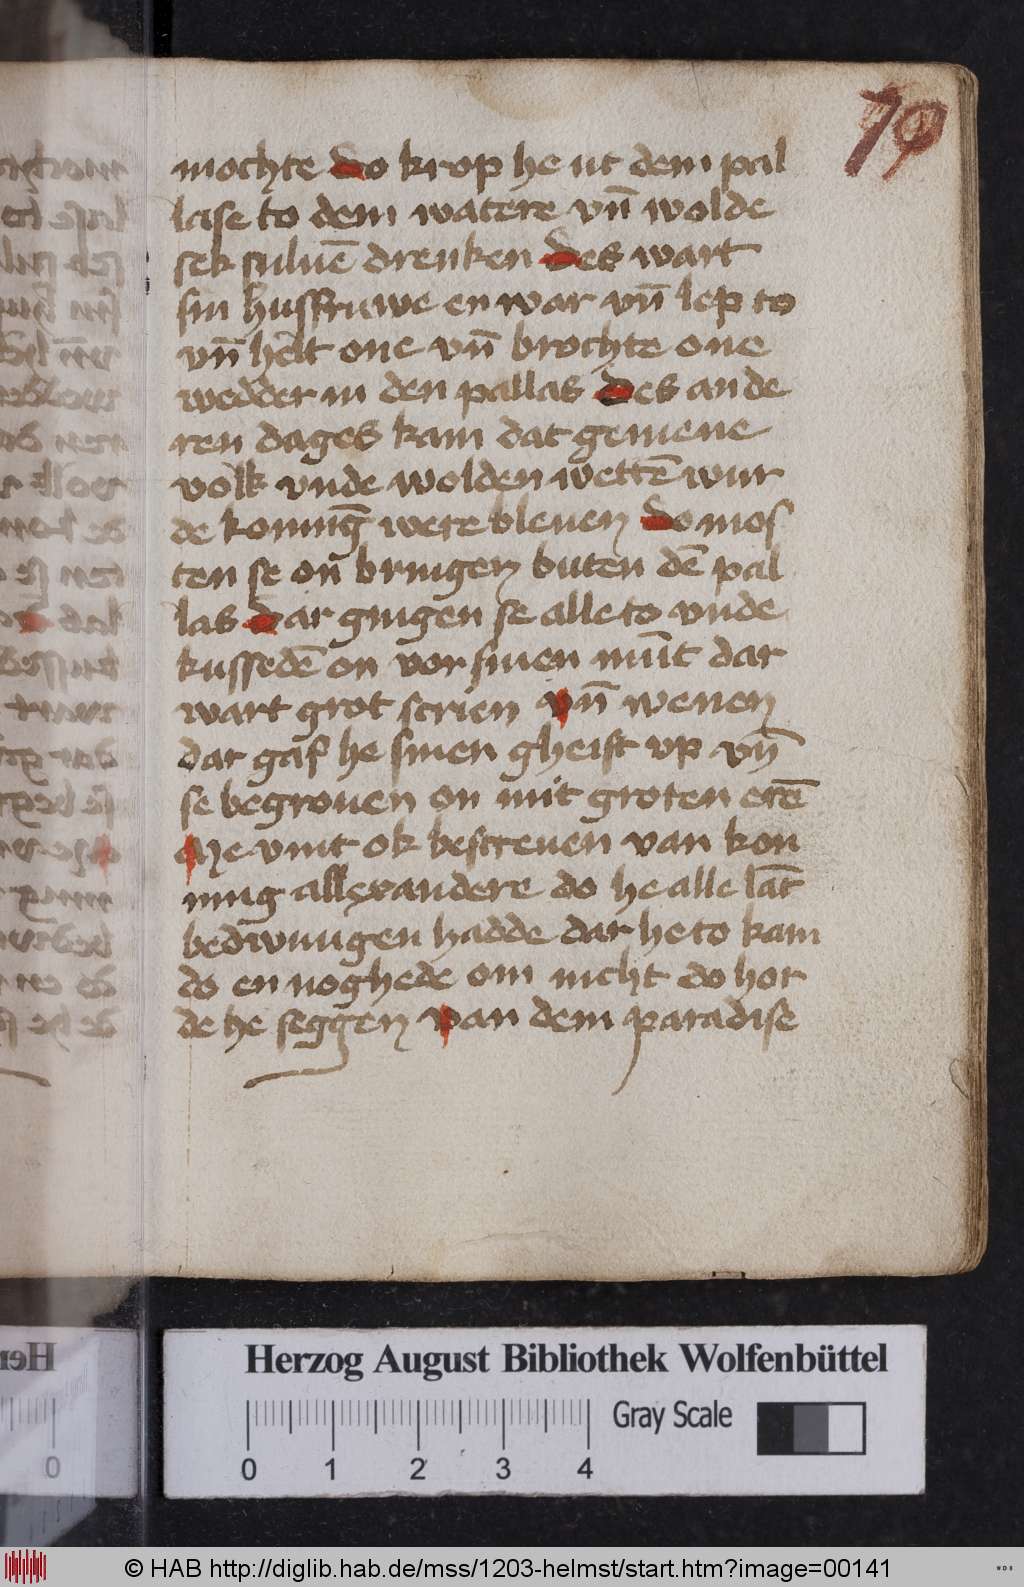 79
mochte do krop he ut dem pal
lase to dem watere vn̄ wolde
sek suluē drenken des wart
sin husfruwe en war vn̄ lep to
vn̄ helt one vn̄ brochte one
wedder in den pallas des ande
ren dages kam dat gemene
volk vnde wolden wettē wur
de koning were bleuen do mos
ten se on̄ bringen buten dē pal
las dar gingen se alle to vnde
kussedē on vor sinen mūt dar
wart grot scrien vn̄ wenen
dar gaf he sinen gheist vp vn̄
se begrouen on mit groten erē
Me vint ok bescreuen van kon
ning allexandere do he alle lāt
bedwungen hadde dar he to kam
do en noghede om nicht do hor
de he seggen van dem paradise
Herzog August Bibliothek Wolfenbüttel
Gray Scale
0 1 2 3 4
0
© HAB http://diglib.hab.de/mss/1203-helmst/start.htm?image=00141